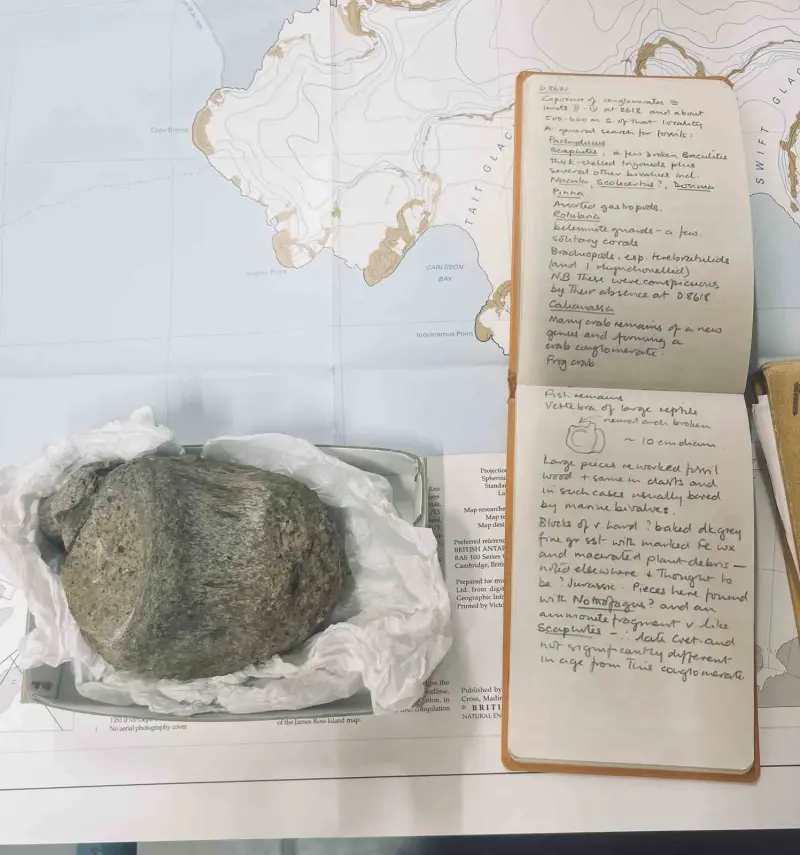 TAIT GLAC
SWIFT GLAC
CARLSSON
BAY
Inoceramus Point
D.8621
Exposure of conglomerates ≡
units II-IV at 8618 and about
500-600 m S. of that locality
A general search for fossils:
Scaphites, a few broken Baculites
thick-shelled trigoniids plus
several other bivalves incl.
Nucula, ?, Dosinia
Pinna
Assorted gastropods.
Rotularia
belemnite guards - a few.
solitary corals
Brachiopods, esp. terebratulids
(and 1 rhynchonellid)
N.B These were conspicuous
by their absence at D8618
Callianassa
Many crab remains of a new
genus and forming a
crab conglomerate.
Frog crab
Fish remains
Vertebra of large reptile
neural arch broken
~ 10 cm diam
Large pieces reworked fossil
wood + same in clasts and
in such cases usually bored
by marine bivalves.
Blocks of v hard ? baked dk grey
fine gr sst with marked Fe wx
and macerated plant debris —
noted elsewhere & thought to
be ? Jurassic. Pieces here found
with Nothofagus? and an
ammonite fragment v like
Scaphites - ∴ late Cret and
not significantly different
in age from this conglomerate.
Projectio
Spheroi
Standar
La
Map researche
Map te
Map desi
Preferred referenc
BRITISH ANTAR
BAS 100 Series
Cambridge, Brit
Prepared for
Ltd. from digi
Geographic Inf
Printed by Victo
Published by
Cross, Madin
© BRITI
NATURAL EN
No aerial photography cover
of the James Ross Island map.